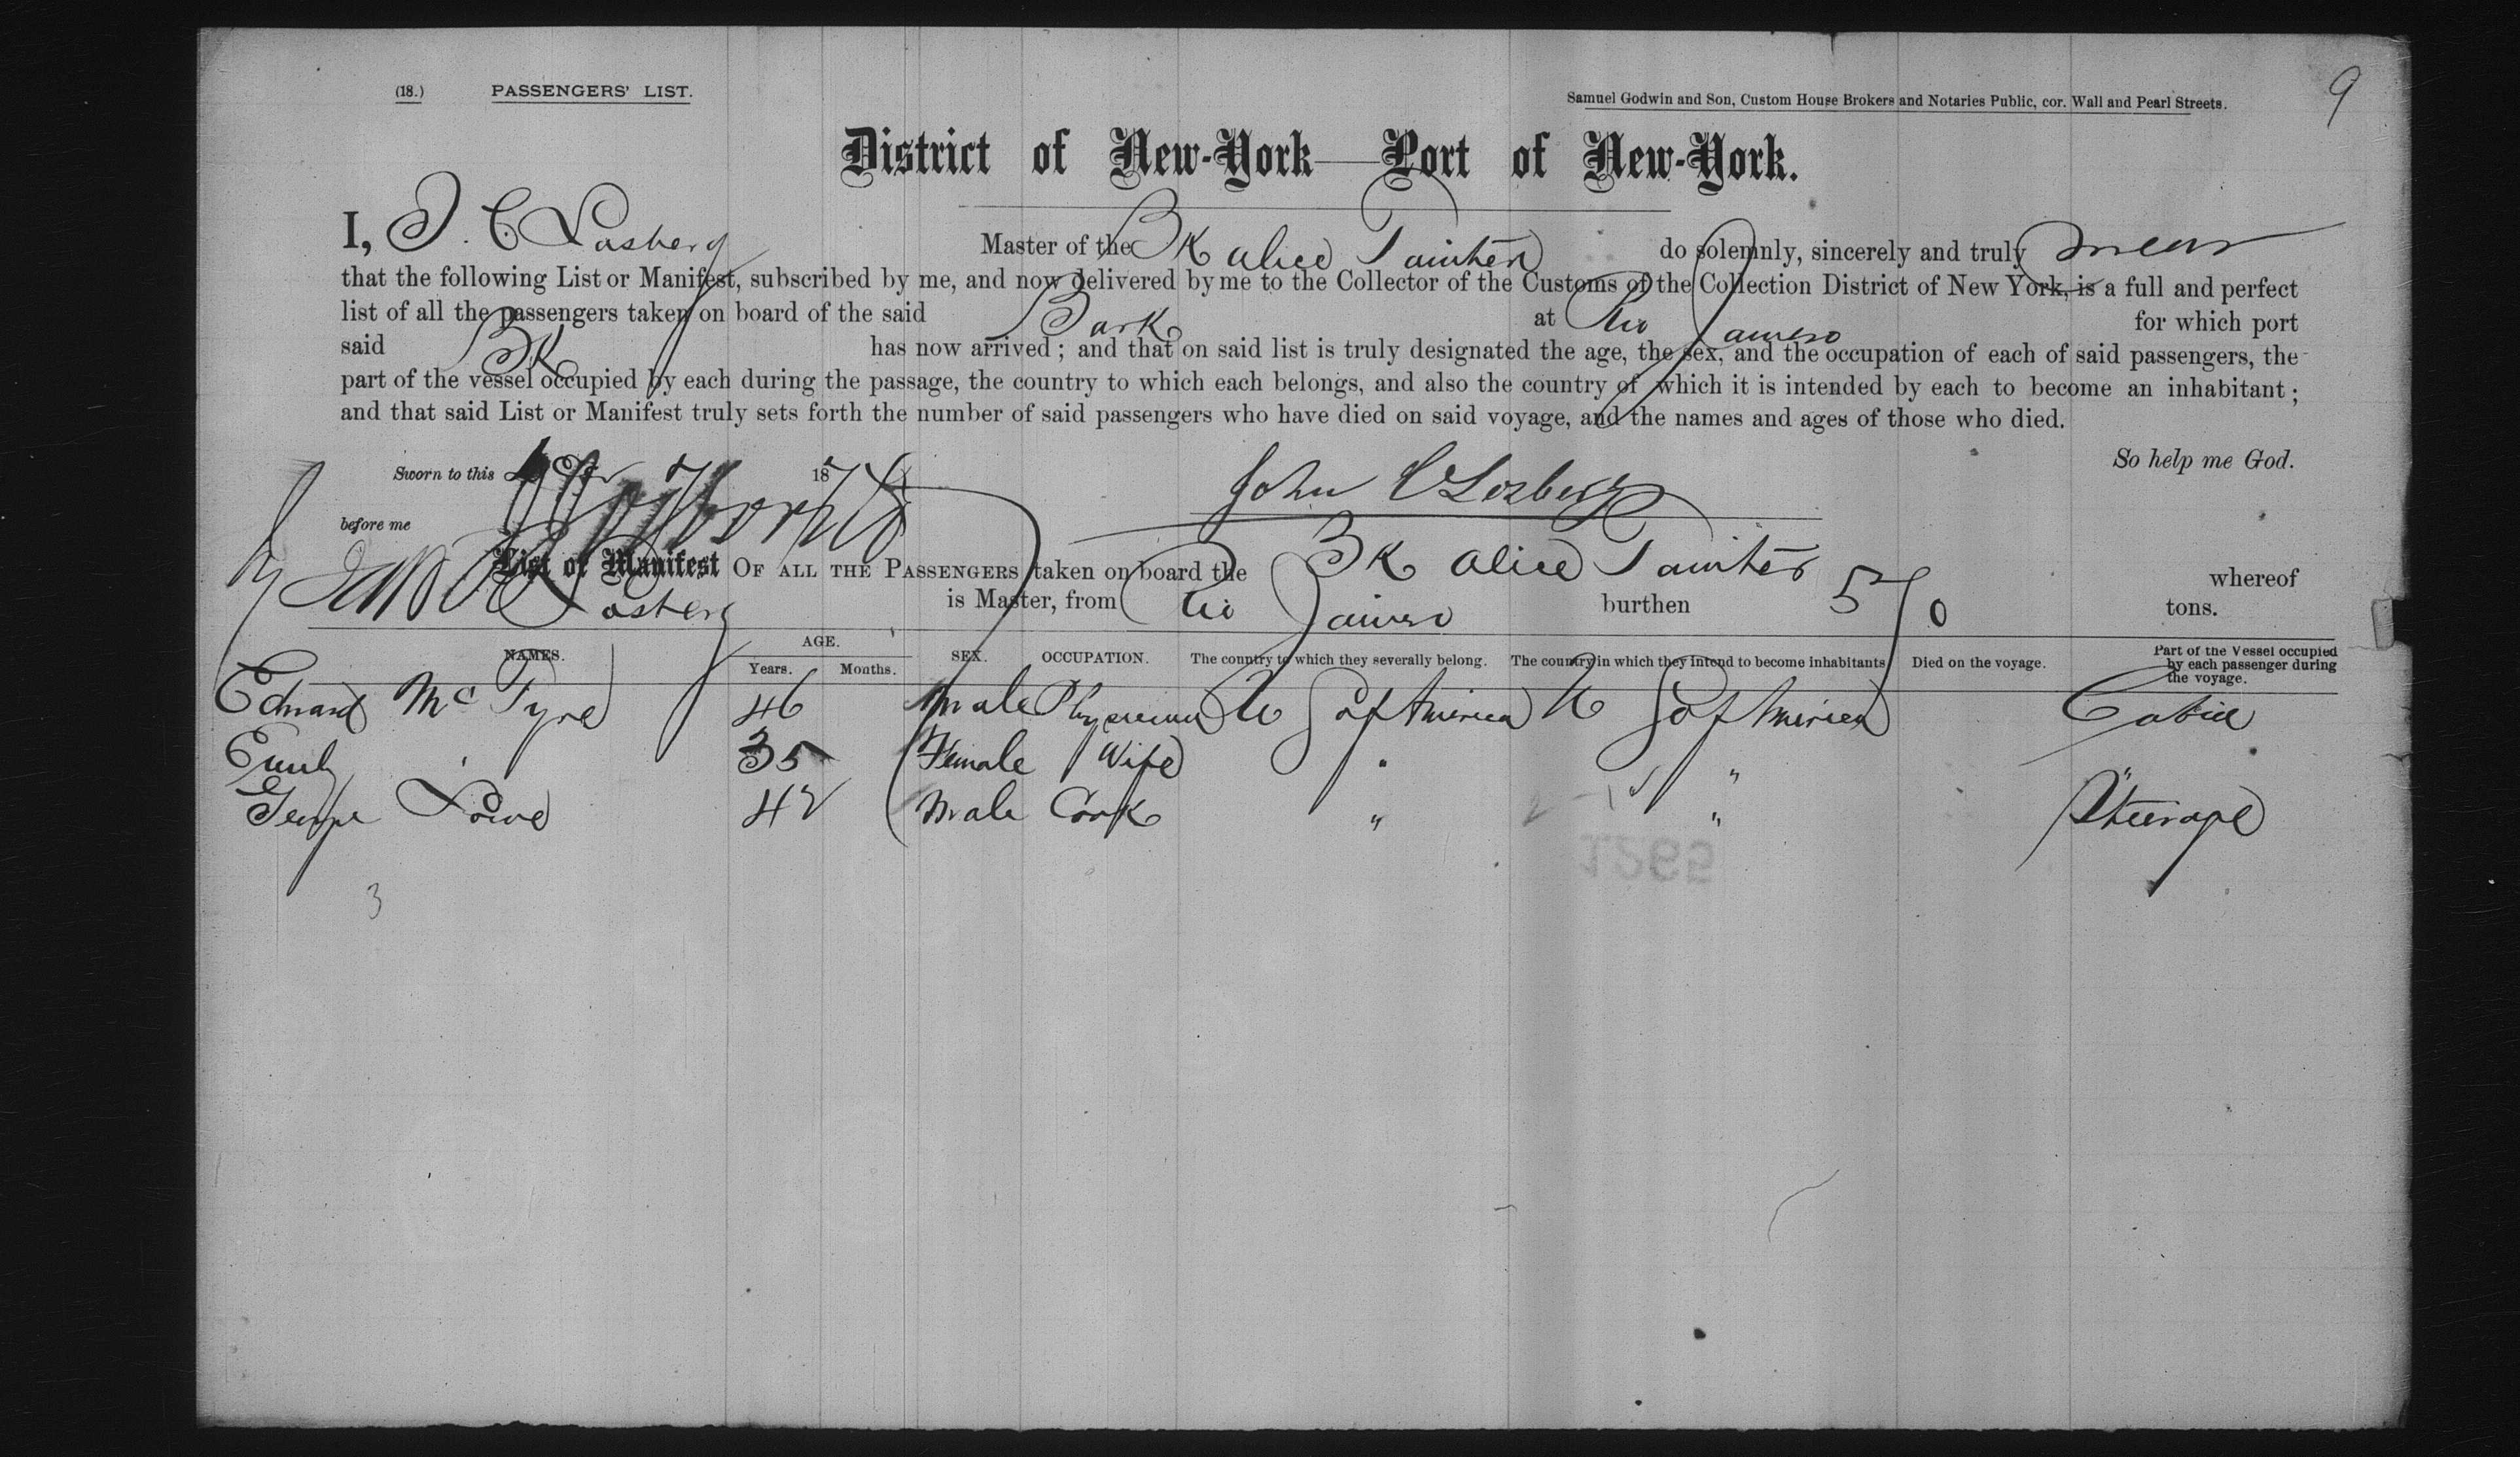 9
(18.) PASSENGERS' LIST. Samuel Godwin and Son, Custom House Brokers and Notaries Public, cor. Wall and Pearl Streets.
District of New-York—Port of New-York.
I, J. C Losberg Master of the Bk Alice Tainter do solemnly, sincerely and truly swear
that the following List or Manifest, subscribed by me, and now delivered by me to the Collector of the Customs of the Collection District of New York, is a full and perfect
list of all the passengers taken on board of the said Bark at Rio Janeiro for which port
said Bk has now arrived; and that on said list is truly designated the age, the sex, and the occupation of each of said passengers, the
part of the vessel occupied by each during the passage, the country to which each belongs, and also the country of which it is intended by each to become an inhabitant;
and that said List or Manifest truly sets forth the number of said passengers who have died on said voyage, and the names and ages of those who died.
So help me God.
Sworn to this 1874 John C Losberg
before me
List or Manifest OF ALL THE PASSENGERS taken on board the Bk Alice Tainter whereof
Losberg is Master, from Rio Janeiro burthen 570 tons.
NAMES. AGE. Years. Months. SEX. OCCUPATION. The country to which they severally belong. The country in which they intend to become inhabitants Died on the voyage. Part of the Vessel occupied by each passenger during the voyage.
Edward Mc Tyre 46 Male Physician U S of America U S of America Cabin
Emily " 35 Female Wife " " "
George Lowe 42 Male Cook " " Steerage
3